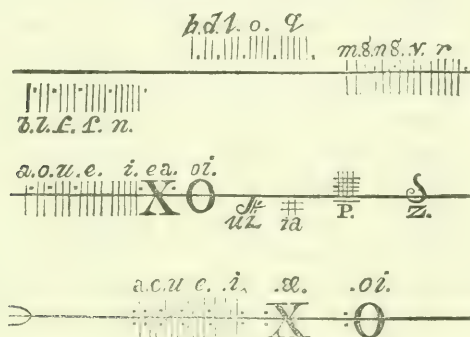 h. d. t. o. q
m. g. ng. v. r
b. l. f. s. n.
a. o. u. e. i. ea. oi.
X O
uz ia P. Z.
a c u e. i. æ. .oi.
X O